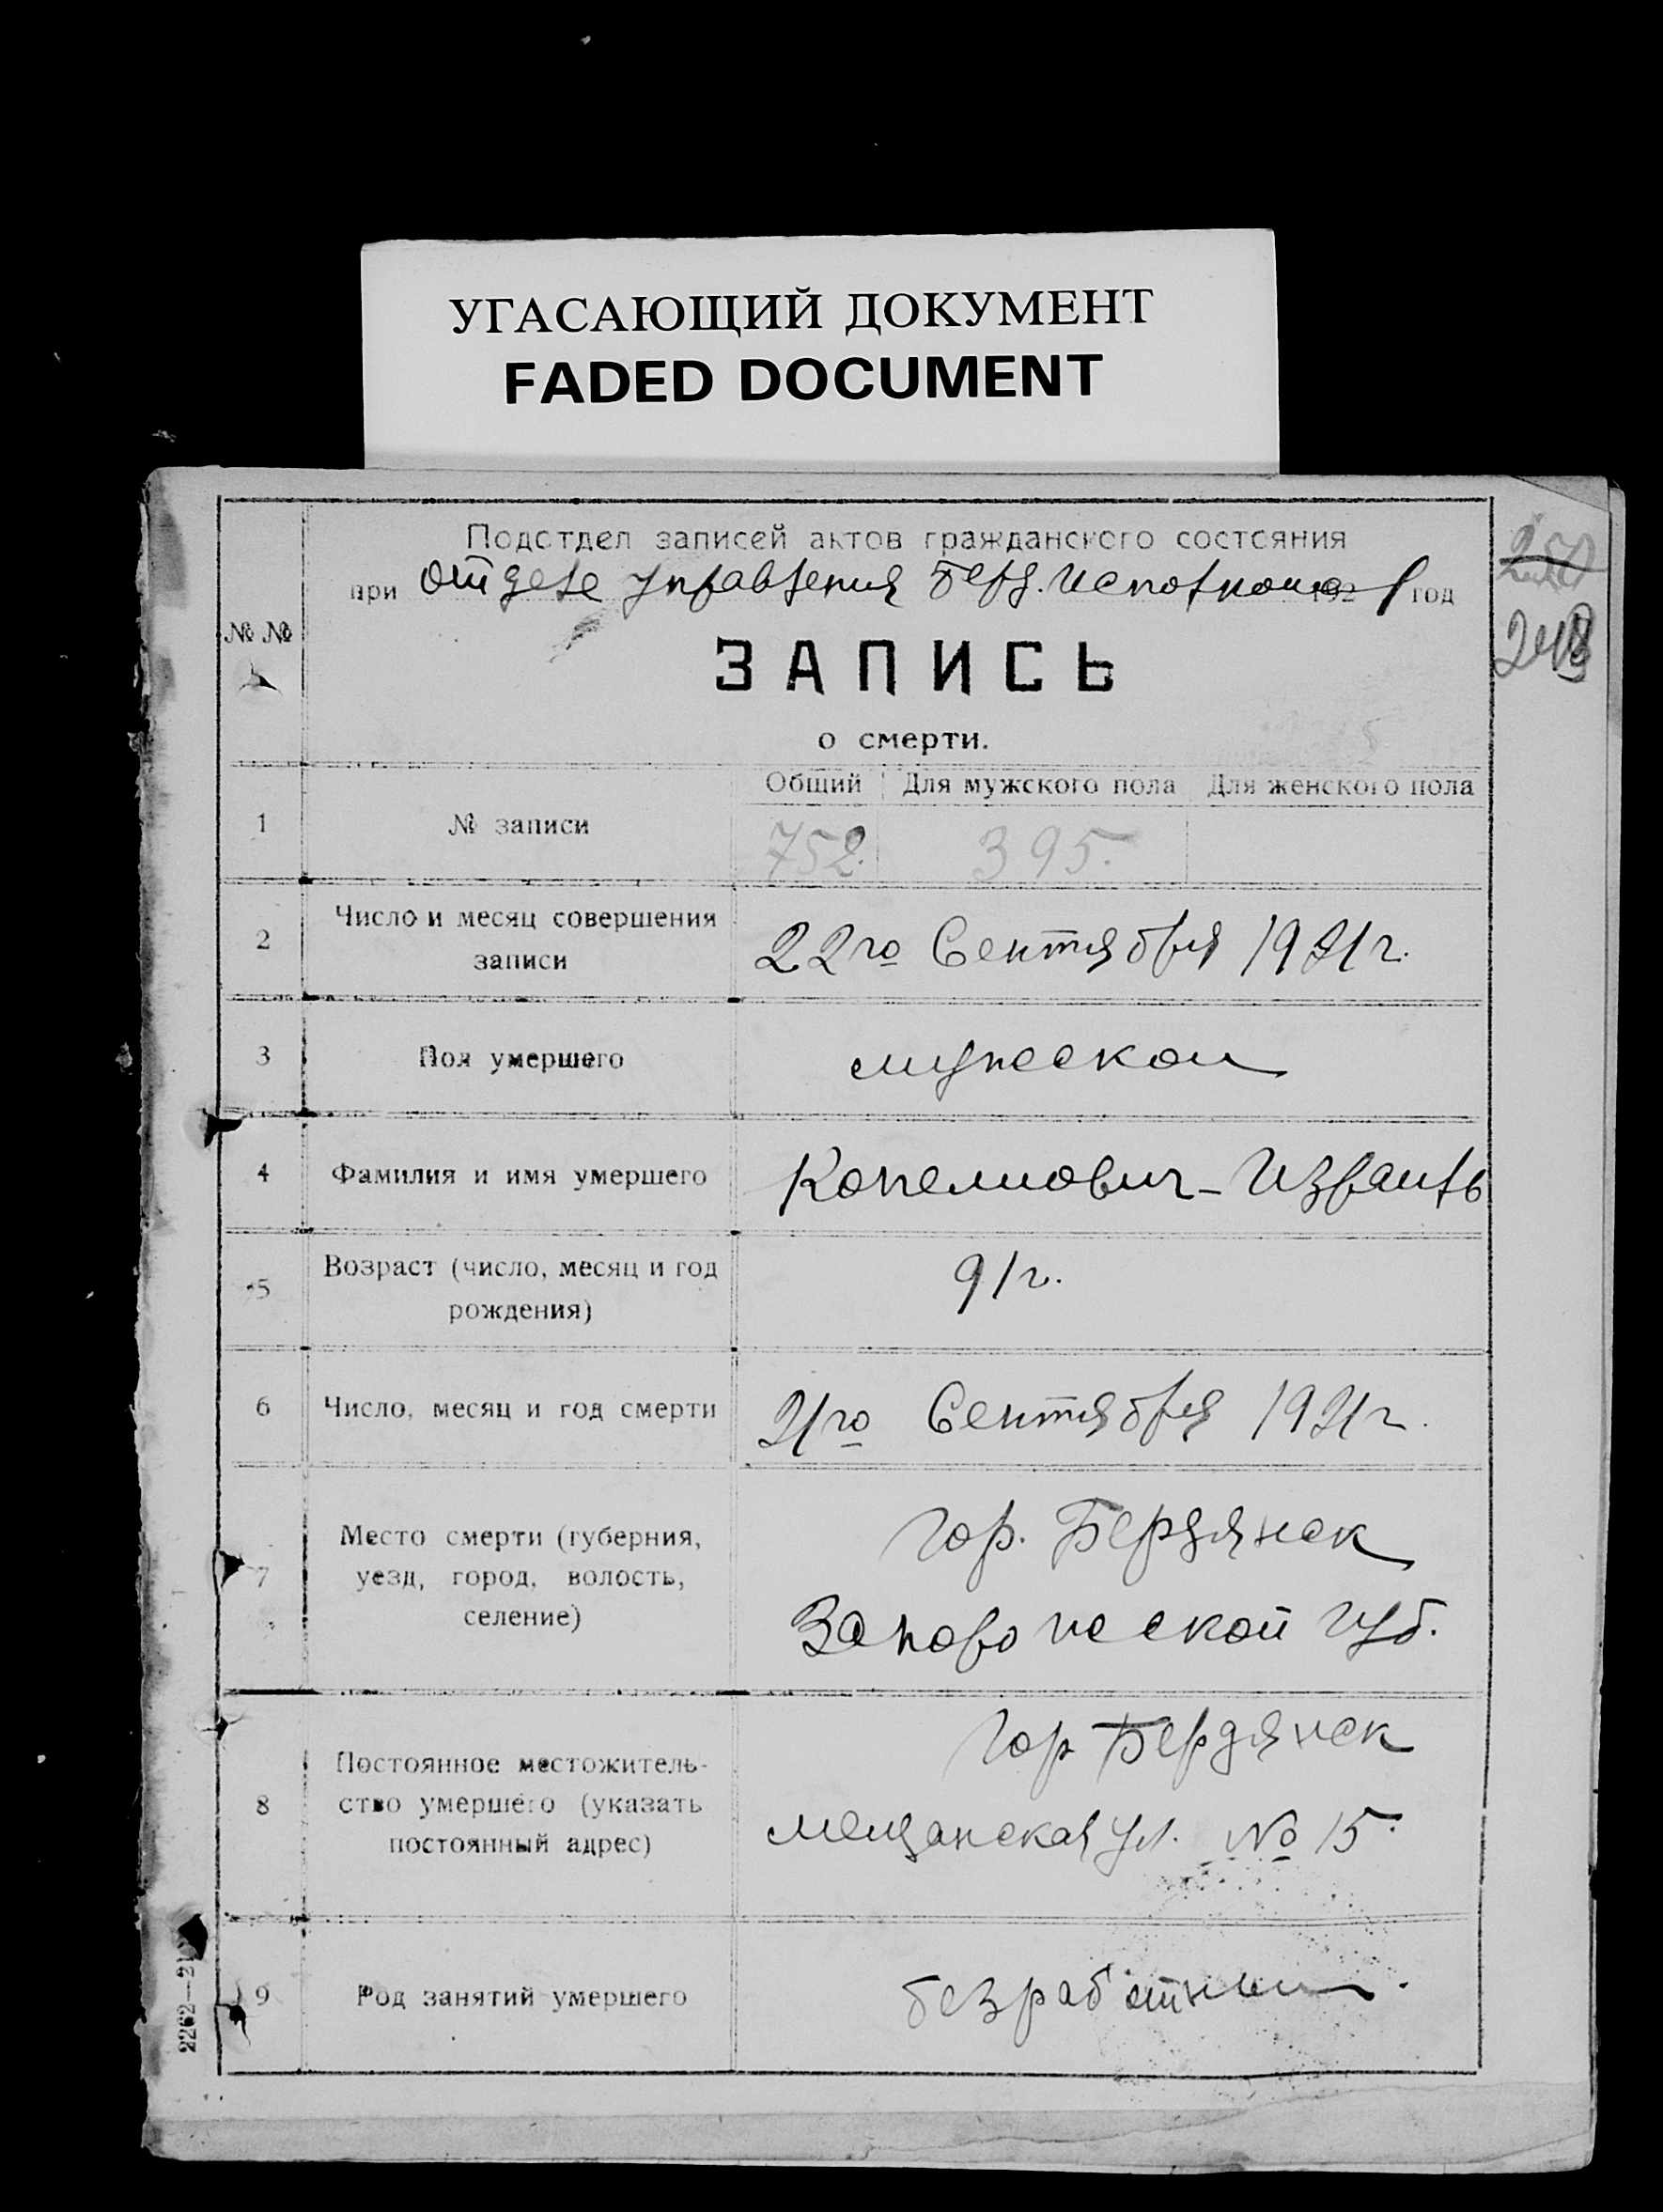 УГАСАЮЩИЙ ДОКУМЕНТ
FADED DOCUMENT
Подотдел записей актов гражданского состояния
при Отделе Управления Берд. Исполкома 1921 год
№ №
ЗАПИСЬ
о смерти.
Общий Для мужского пола Для женского пола
1 № записи 752. 395.
2 Число и месяц совершения
записи
22го Сентября 1921г.
3 Пол умершего мужской
4 Фамилия и имя умершего Копелиович - Израиль
5 Возраст (число, месяц и год
рождения)
91г.
6 Число, месяц и год смерти 21го Сентября 1921г.
7 Место смерти (губерния,
уезд, город, волость,
селение)
гор. Бердянск
Запорожской губ.
8 Постоянное местожитель-
ство умершего (указать
постоянный адрес)
гор Бердянск
мещанская ул. № 15.
9 Род занятий умершего безработный.